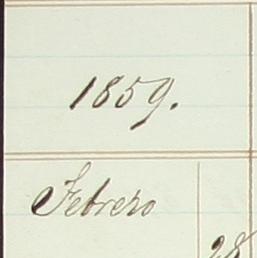 1859.
Febrero
28